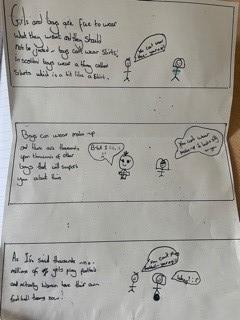 Girls and boys are free to wear
what they want and they should
not be judged - boys can wear skirts,
in scotland boys wear a thing called
which is a bit like a skirt.
You can't wear
Boys can wear make-up
and there are thousands
upon thousands of other
boys that will support
you about this
But I
You can't wear
make-up it looks silly
on you
As I'm said thousands
millions of girls play football
and actually women have their own
football teams now!
You can't play
football
Why?